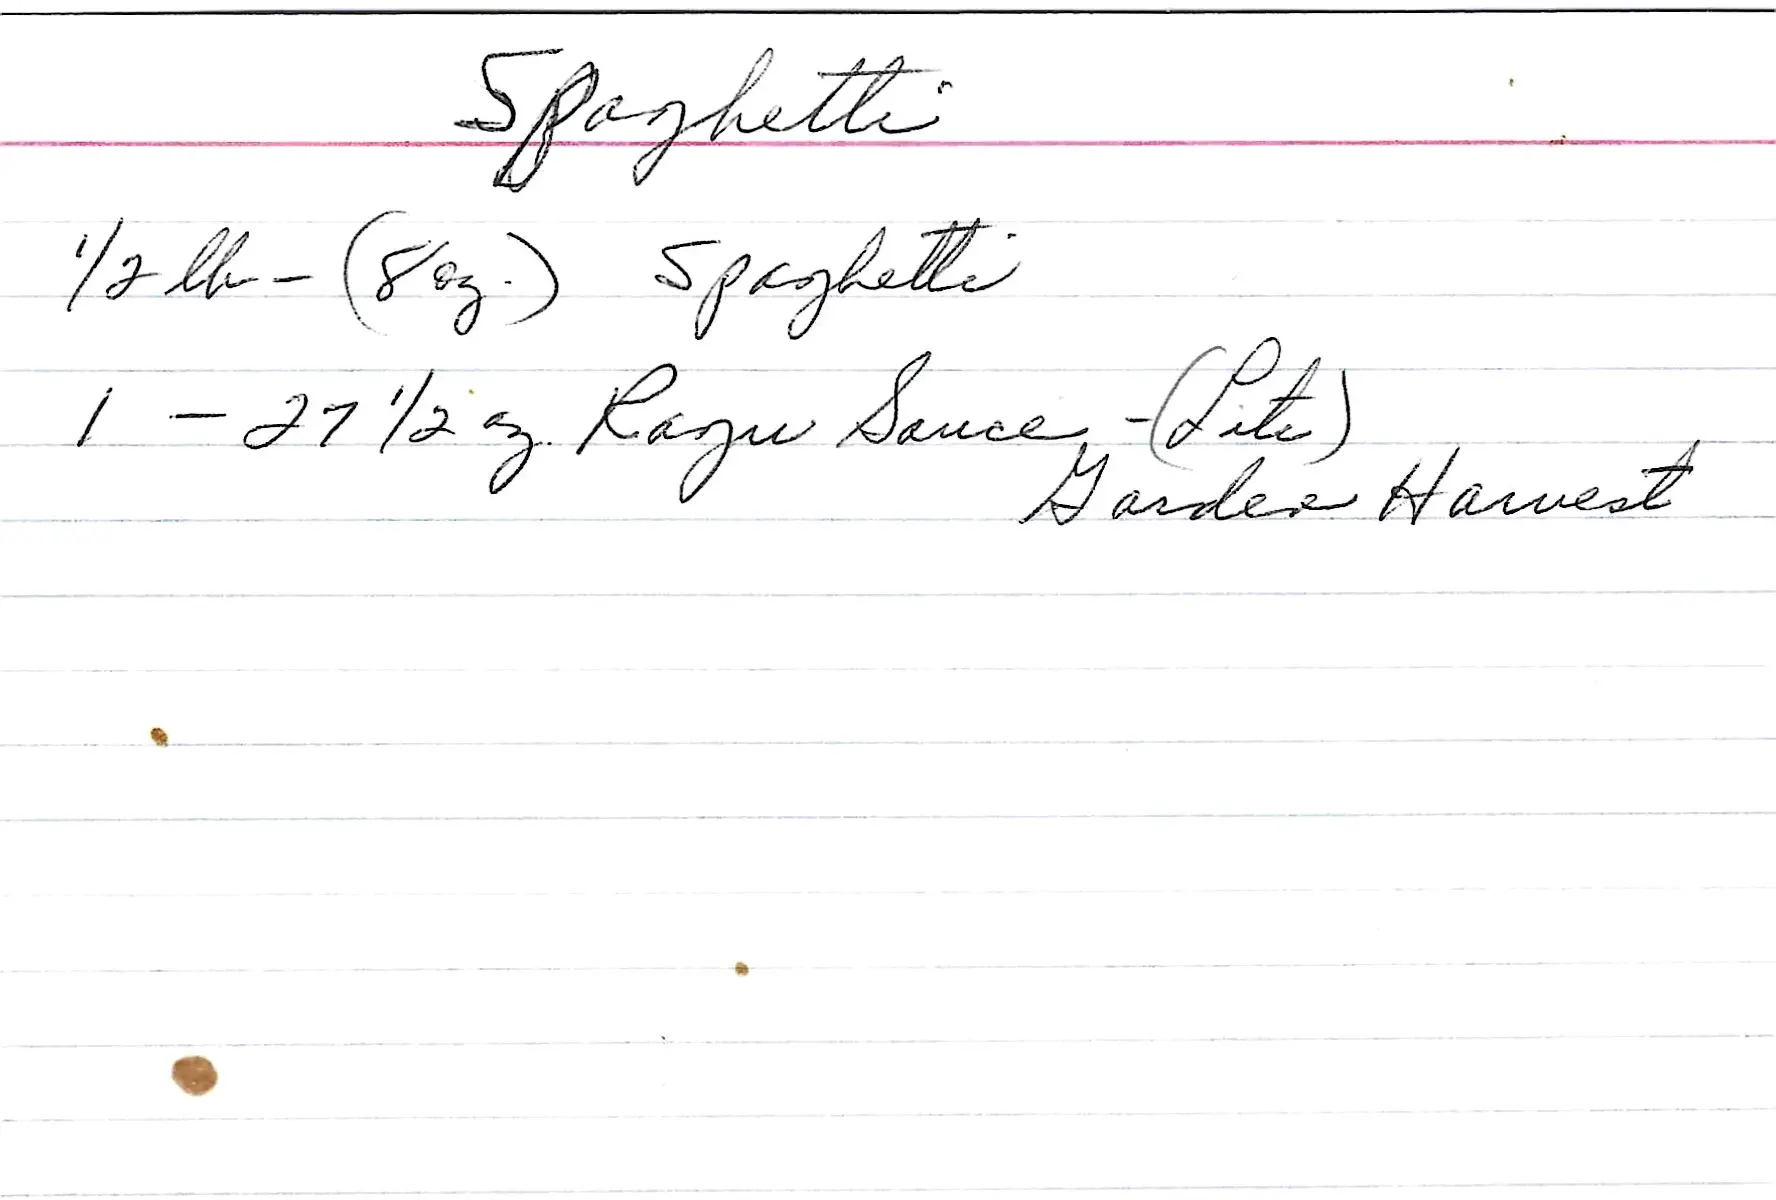 Spaghetti
1/2 lb - (8 oz.) Spaghetti
1 - 27 1/2 oz. Ragu Sauce - (Lite)
Garden Harvest